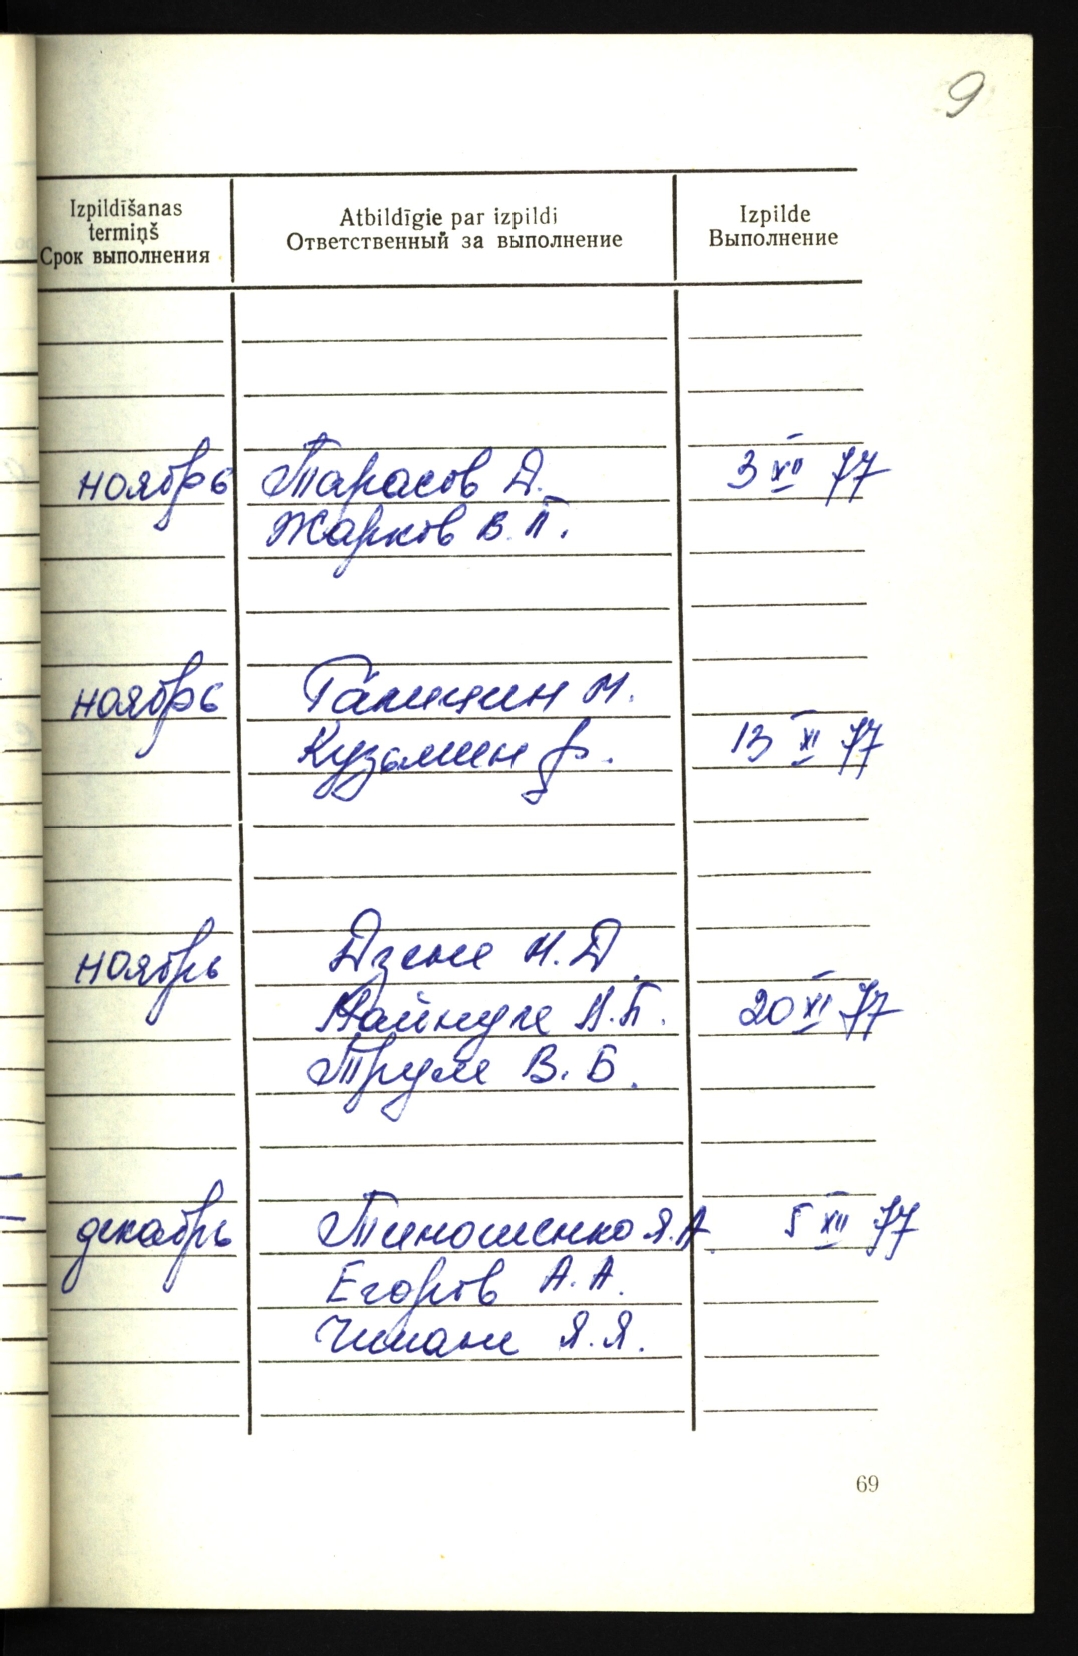 9
Izpildīšanas
termiņš
Срок выполнения
Atbildīgie par izpildi
Ответственный за выполнение
Izpilde
Выполнение
ноябрь Тарасов Д. 3 XII 77
Жарков В.П.
ноябрь Галицин Н.
Кузьмин Ф. 13 XI 77
ноябрь Дзене Н.Д.
20 XI 77
Труле В.Б.
декабрь Тимошенко Я.А. 5 XII 77
Егоров А.А.
Я.Я.
69